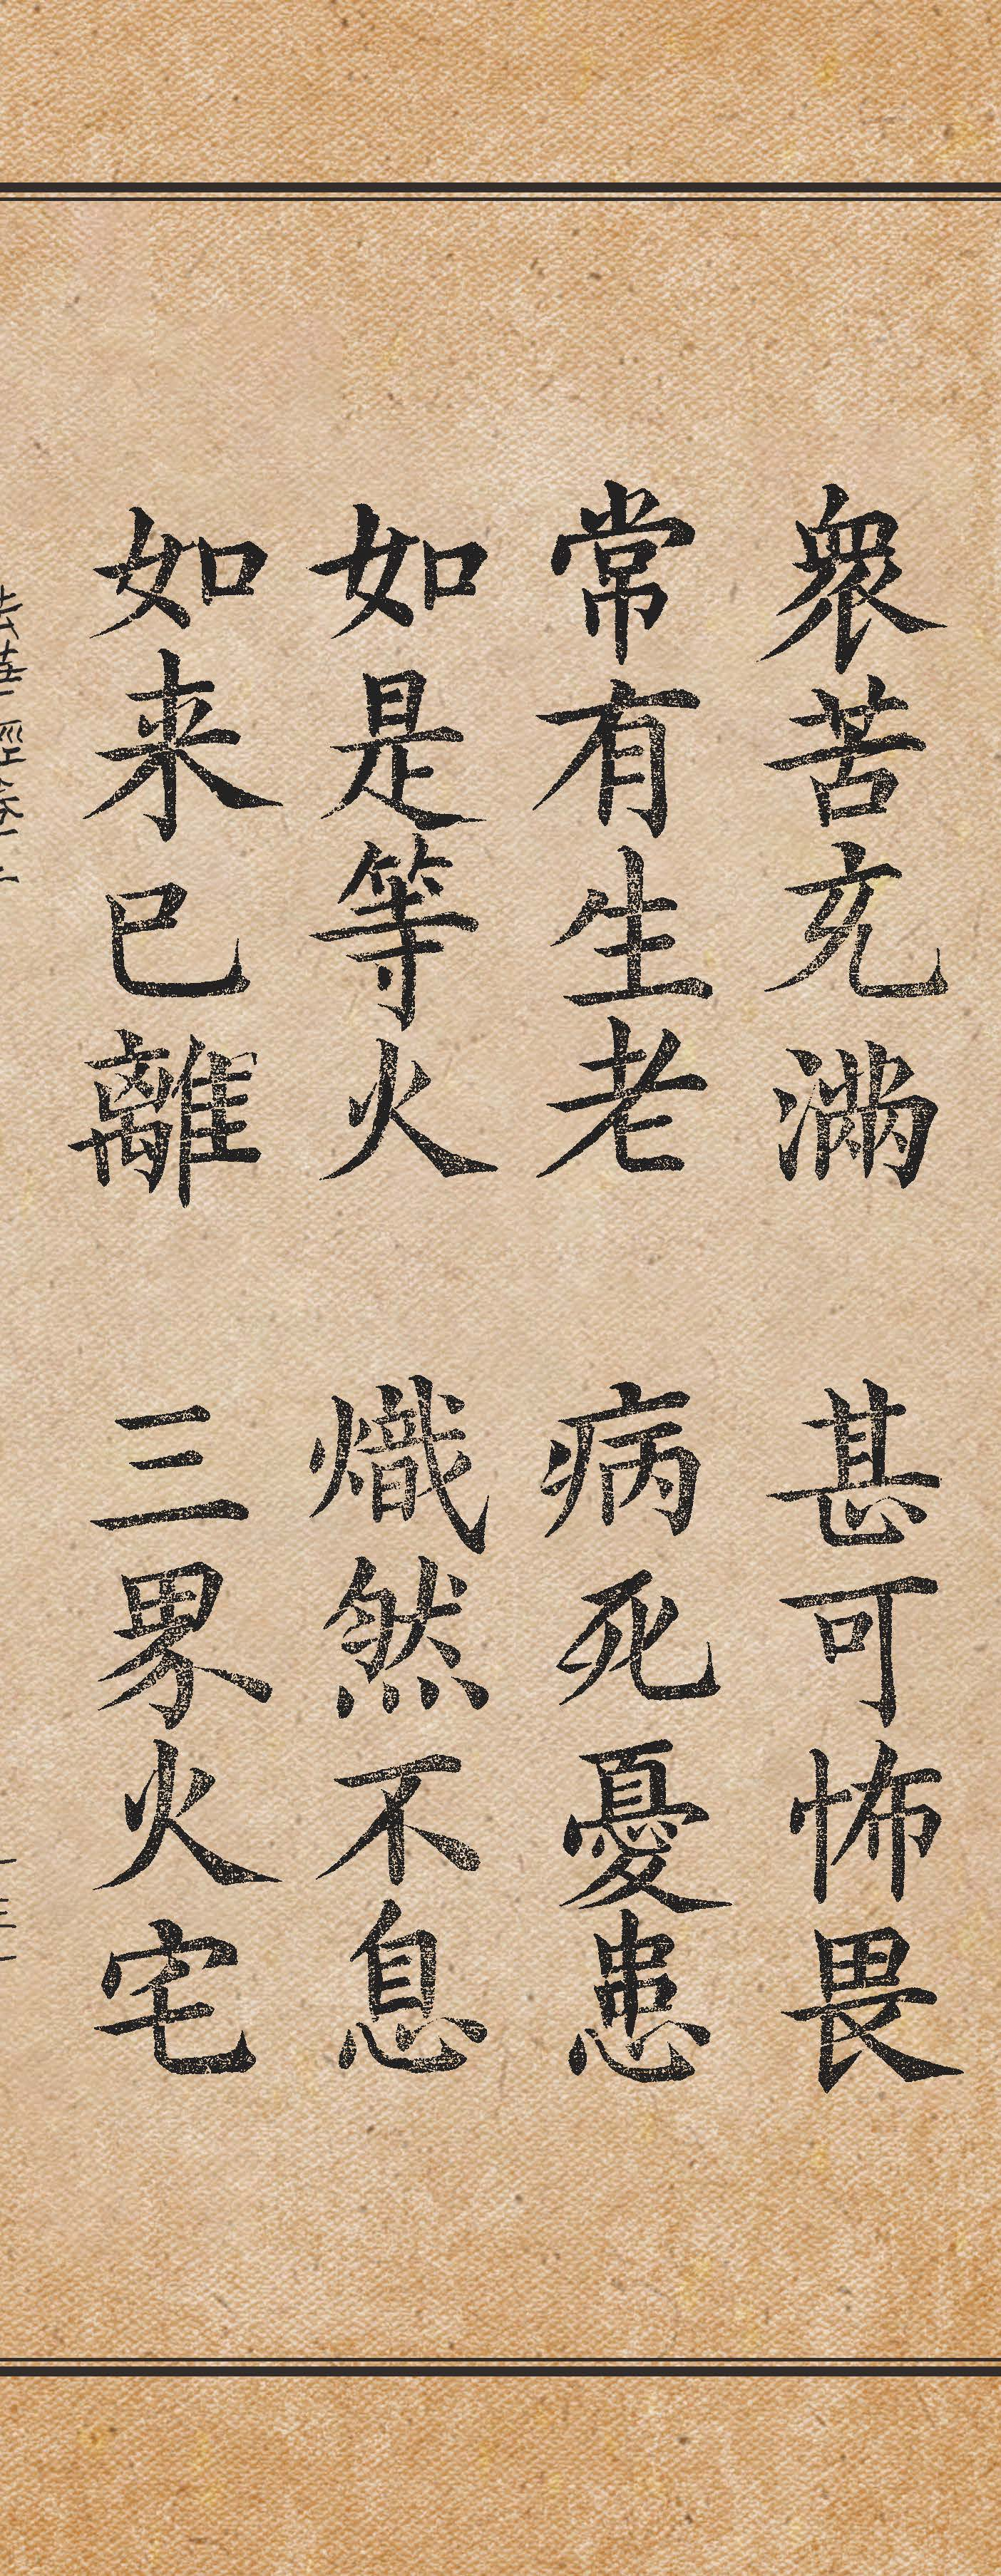 衆苦充滿 甚可怖畏
常有生老 病死憂患
如是等火 熾然不息
如来已離 三界火宅